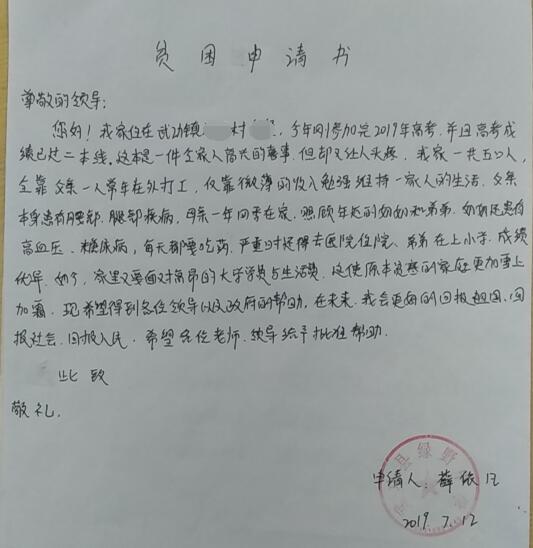 贫困申请书
尊敬的领导:
您好!我家住在武功镇 村 ,今年刚参加完2019年高考.并且高考成
绩已过二本线.这本是一件全家人高兴的喜事.但却又让人头疼.我家一共五口人,
全靠父亲一人常年在外打工,仅靠微薄的收入勉强维持一家人的生活.父亲
本身患有腰部.腿部疾病,母亲一年四季在家.照顾年迈的奶奶和弟弟.奶奶还患有
高血压、糖尿病,每天都要吃药.严重时还得去医院住院、弟弟在上小学.成绩
优异.如今,家里又要面对高昂的大学学费与生活费.这使原本贫寒的家庭更加雪上
加霜.现希望得到各位领导以及政府的帮助,在未来.我会更好的回报祖国、回
报社会.回报人民.希望各位老师.领导给予批准帮助.
此致
敬礼.
缘野
申请人:薛依
2019.7.12